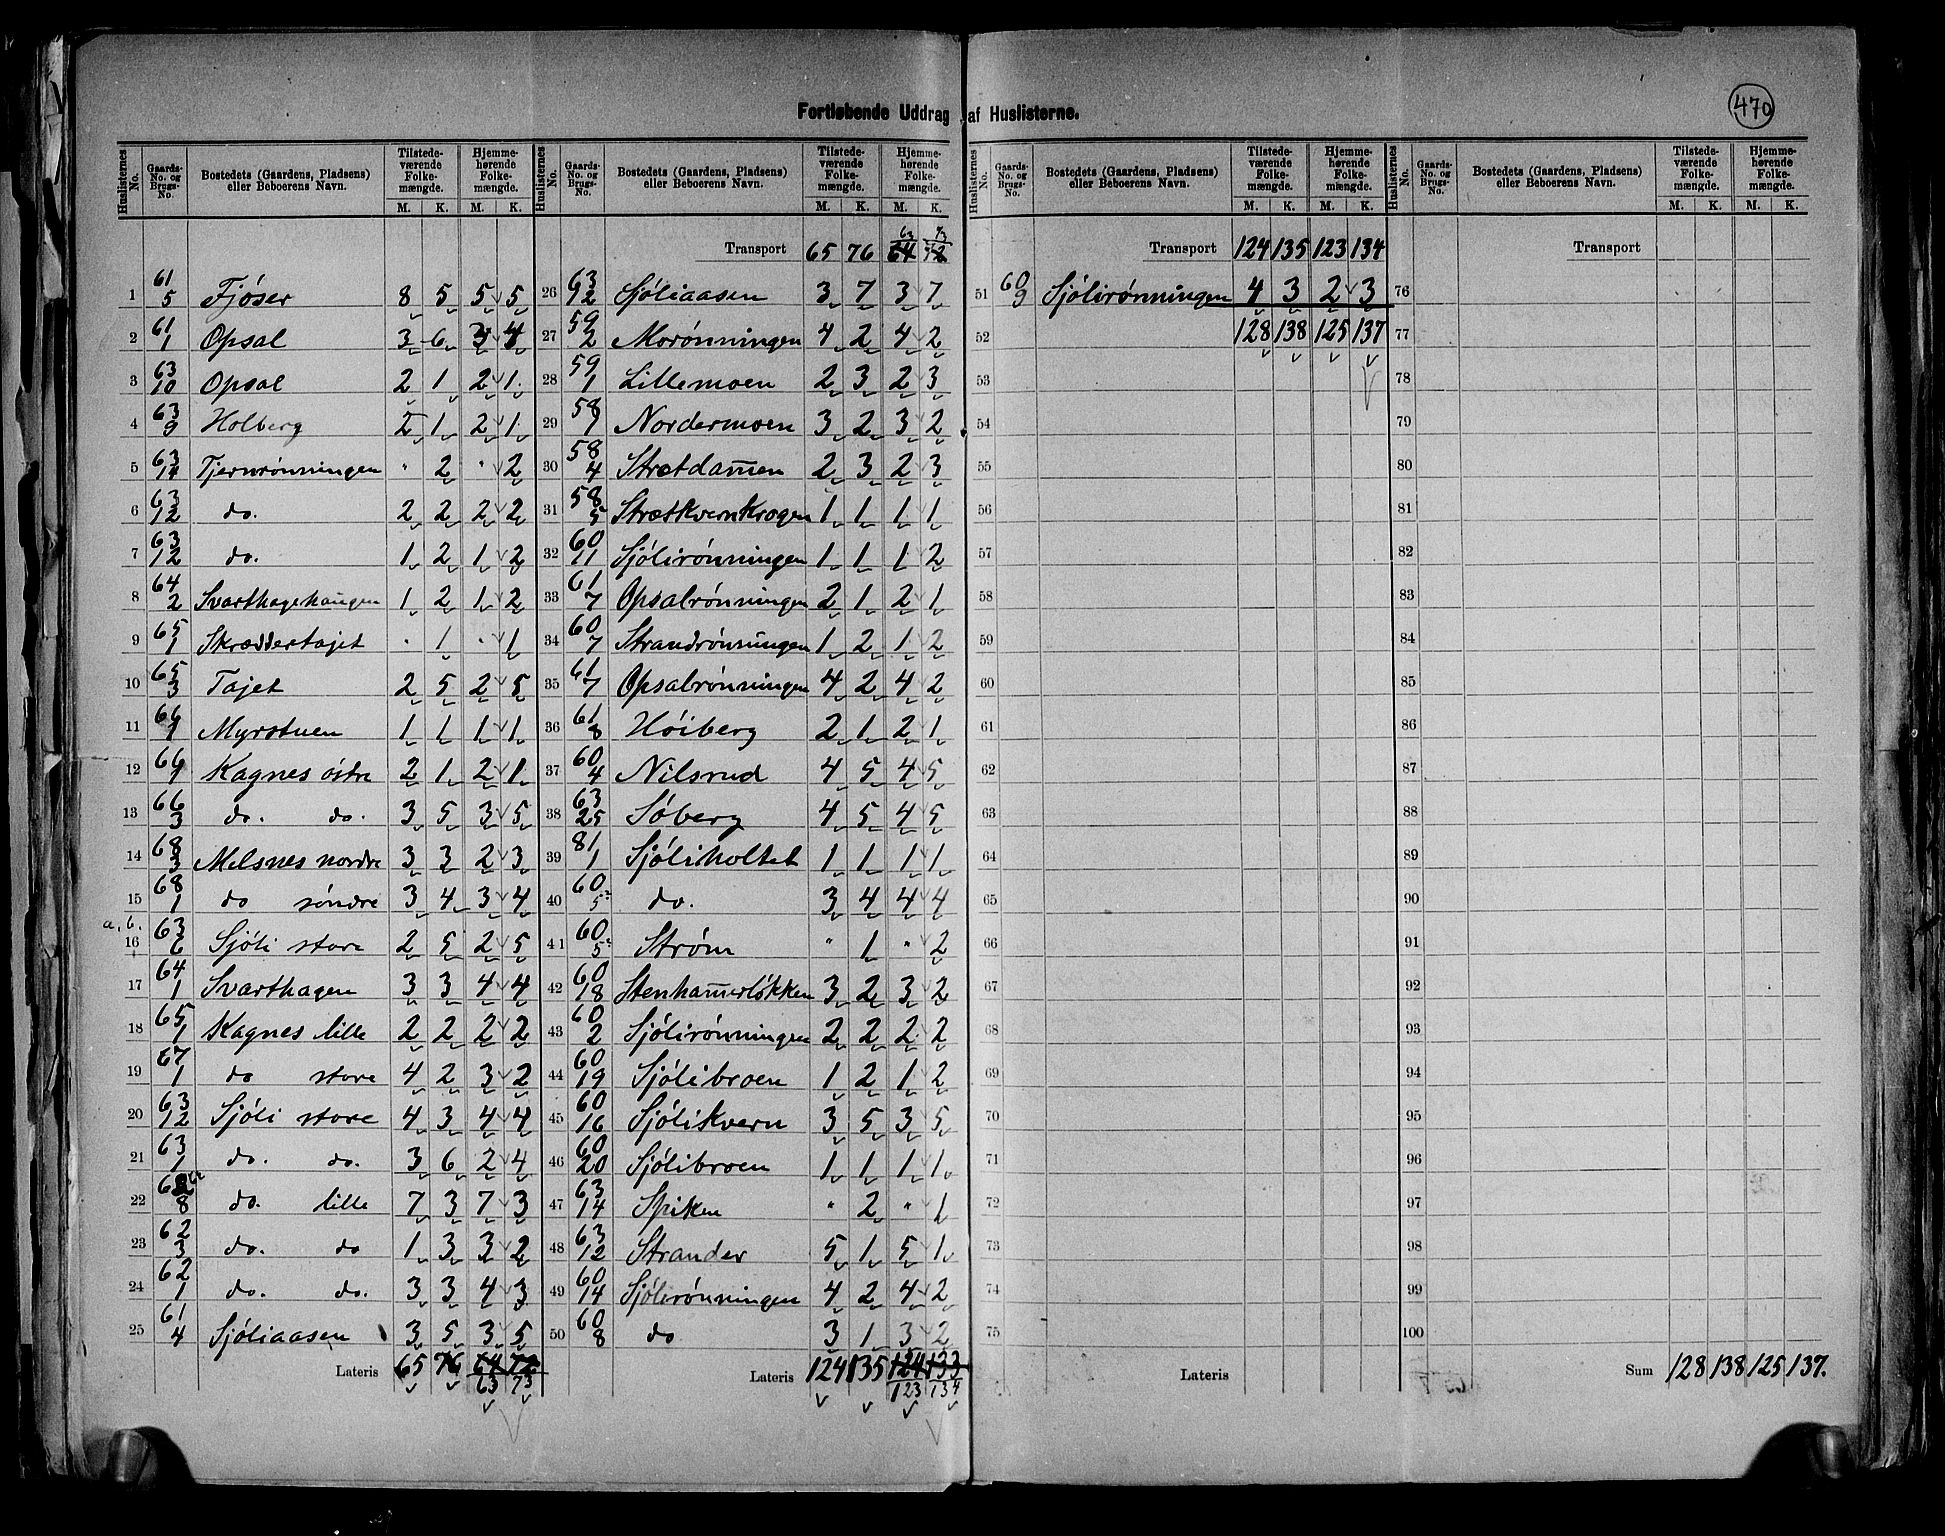 Fortløbende Uddrag af Huslisterne.
470
Huslisternes No. Gaards-No. og Brugs-No. Bostedets (Gaardens, Pladsens) eller Beboerens Navn. Tilstedeværende Folkemængde. M. K. Hjemmehørende Folkemængde. M. K.
1 61/5 Fjøser 8 5 5 5
2 61/1 Opsal 3 6
3 63/10 Opsal 2 1 2 1
4 63/9 Holberg 2 1 2 1
5 63/14 Tjernrønningen " 2 " 2
6 63/12 do. 2 2 2 2
7 63/12 do. 1 2 1 2
8 64/2 Svarthagehaugen 1 2 1 2
9 65/1 Skræddertajet " 1 " 1
10 65/3 Tajet 2 5 2 5
11 66/1 Myrstuen 1 1 1 1
12 66/1 Kagnes østre 2 1 2 1
13 66/3 do. do. 3 5 3 5
14 68/3 Melsnes nordre 3 3 2 3
15 68/1 do søndre 3 4 3 4
a, b.
16 63/6 Sjøli store 2 5 2 5
17 64/1 Svarthagen 3 3 4 4
18 65/1 Kagnes lille 2 2 2 2
19 67/1 do store 4 2 3 2
20 63/12 Sjøli store 4 3 4 4
21 63/1 do. do. 3 6 2 4
22 62/8 do. lille 7 3 7 3
23 62/3 do. do 1 3 3 2
24 62/1 do. do. 3 3 4 3
25 61/4 Sjøliaasen 3 5 3 5
Lateris 65 76 64 72
63 73
Huslisternes No. Gaards-No. og Brugs-No. Bostedets (Gaardens, Pladsens) eller Beboerens Navn. Tilstedeværende Folkemængde. M. K. Hjemmehørende Folkemængde. M. K.
63 73
Transport 65 76 64 72
26 63/2 Sjøliaasen 3 7 3 7
27 59/2 Morønningen 4 2 4 2
28 59/1 Lillemoen 2 3 2 3
29 58/1 Nordermoen 3 2 3 2
30 58/4 Strætdam̅en 2 3 2 3
31 58/5 Strætkvernkrogen 1 1 1 1
32 60/11 Sjølirønningen 1 1 1 2
33 61/7 Opsalrønningen 2 1 2 1
34 60/7 Strandrønningen 1 2 1 2
35 61/7 Opsalrønningen 4 2 4 2
36 61/8 Høiberg 2 1 2 1
37 60/4 Nilsrud 4 5 4 5
38 63/25 Søberg 4 5 4 5
39 81/1 Sjøliholtet 1 1 1 1
40 60/5² do. 3 4 4 4
41 60/5² Strøm " 1 " 2
42 60/18 Stenham̅erløkken 3 2 3 2
43 60/2 Sjølirønningen 2 2 2 2
44 60/19 Sjølibroen 1 2 1 2
45 60/16 Sjølikvern 3 5 3 5
46 60/20 Sjølibroen 1 1 1 1
47 63/14 Spiken " 2 " 1
48 63/12 Strander 5 1 5 1
49 60/14 Sjølirønningen 4 2 4 2
50 60/8 do 3 1 3 2
Lateris 124 135 124 133
123 134
Huslisternes No. Gaards-No. og Brugs-No. Bostedets (Gaardens, Pladsens) eller Beboerens Navn. Tilstedeværende Folkemængde. M. K. Hjemmehørende Folkemængde. M. K.
Transport 124 135 123 134
51 60/9 Sjølirønningen 4 3 2 3
52 128 138 125 137
53
54
55
56
57
58
59
60
61
62
63
64
65
66
67
68
69
70
71
72
73
74
75
Lateris
Huslisternes No. Gaards-No. og Brugs-No. Bostedets (Gaardens, Pladsens) eller Beboerens Navn. Tilstedeværende Folkemængde. M. K. Hjemmehørende Folkemængde. M. K.
Transport
76
77
78
79
80
81
82
83
84
85
86
87
88
89
90
91
92
93
94
95
96
97
98
99
100
Sum 128 138 125 137.